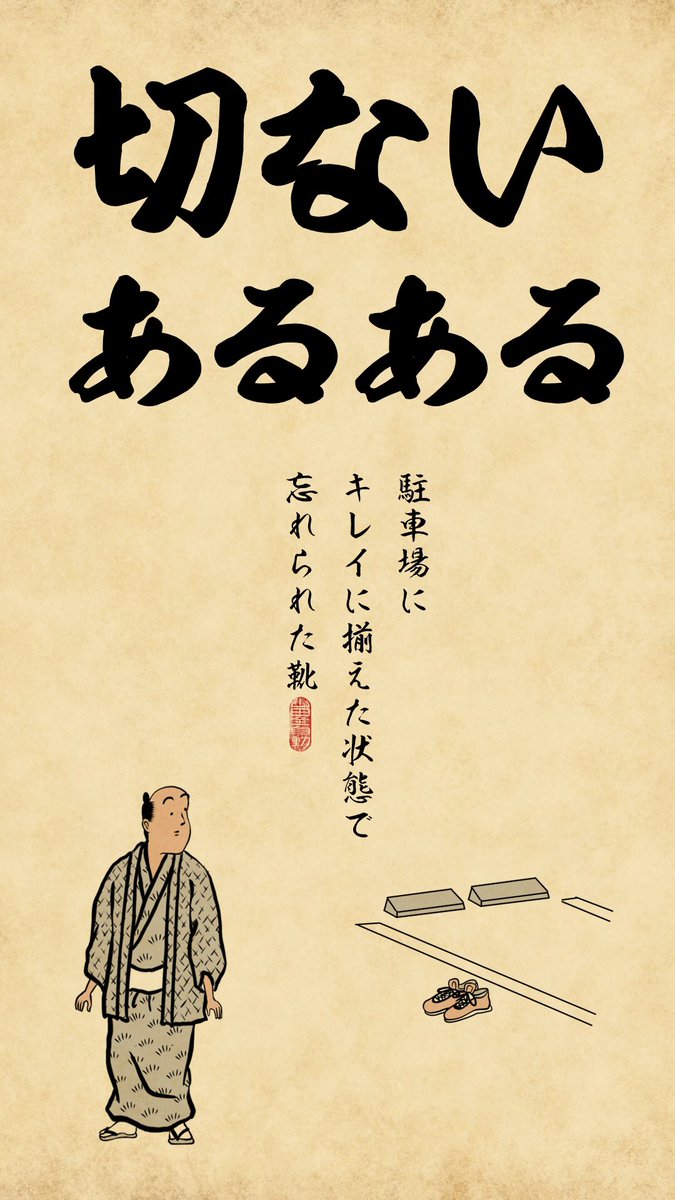 切ない
あるある
駐車場に
キレイに揃えた状態で
忘れられた靴